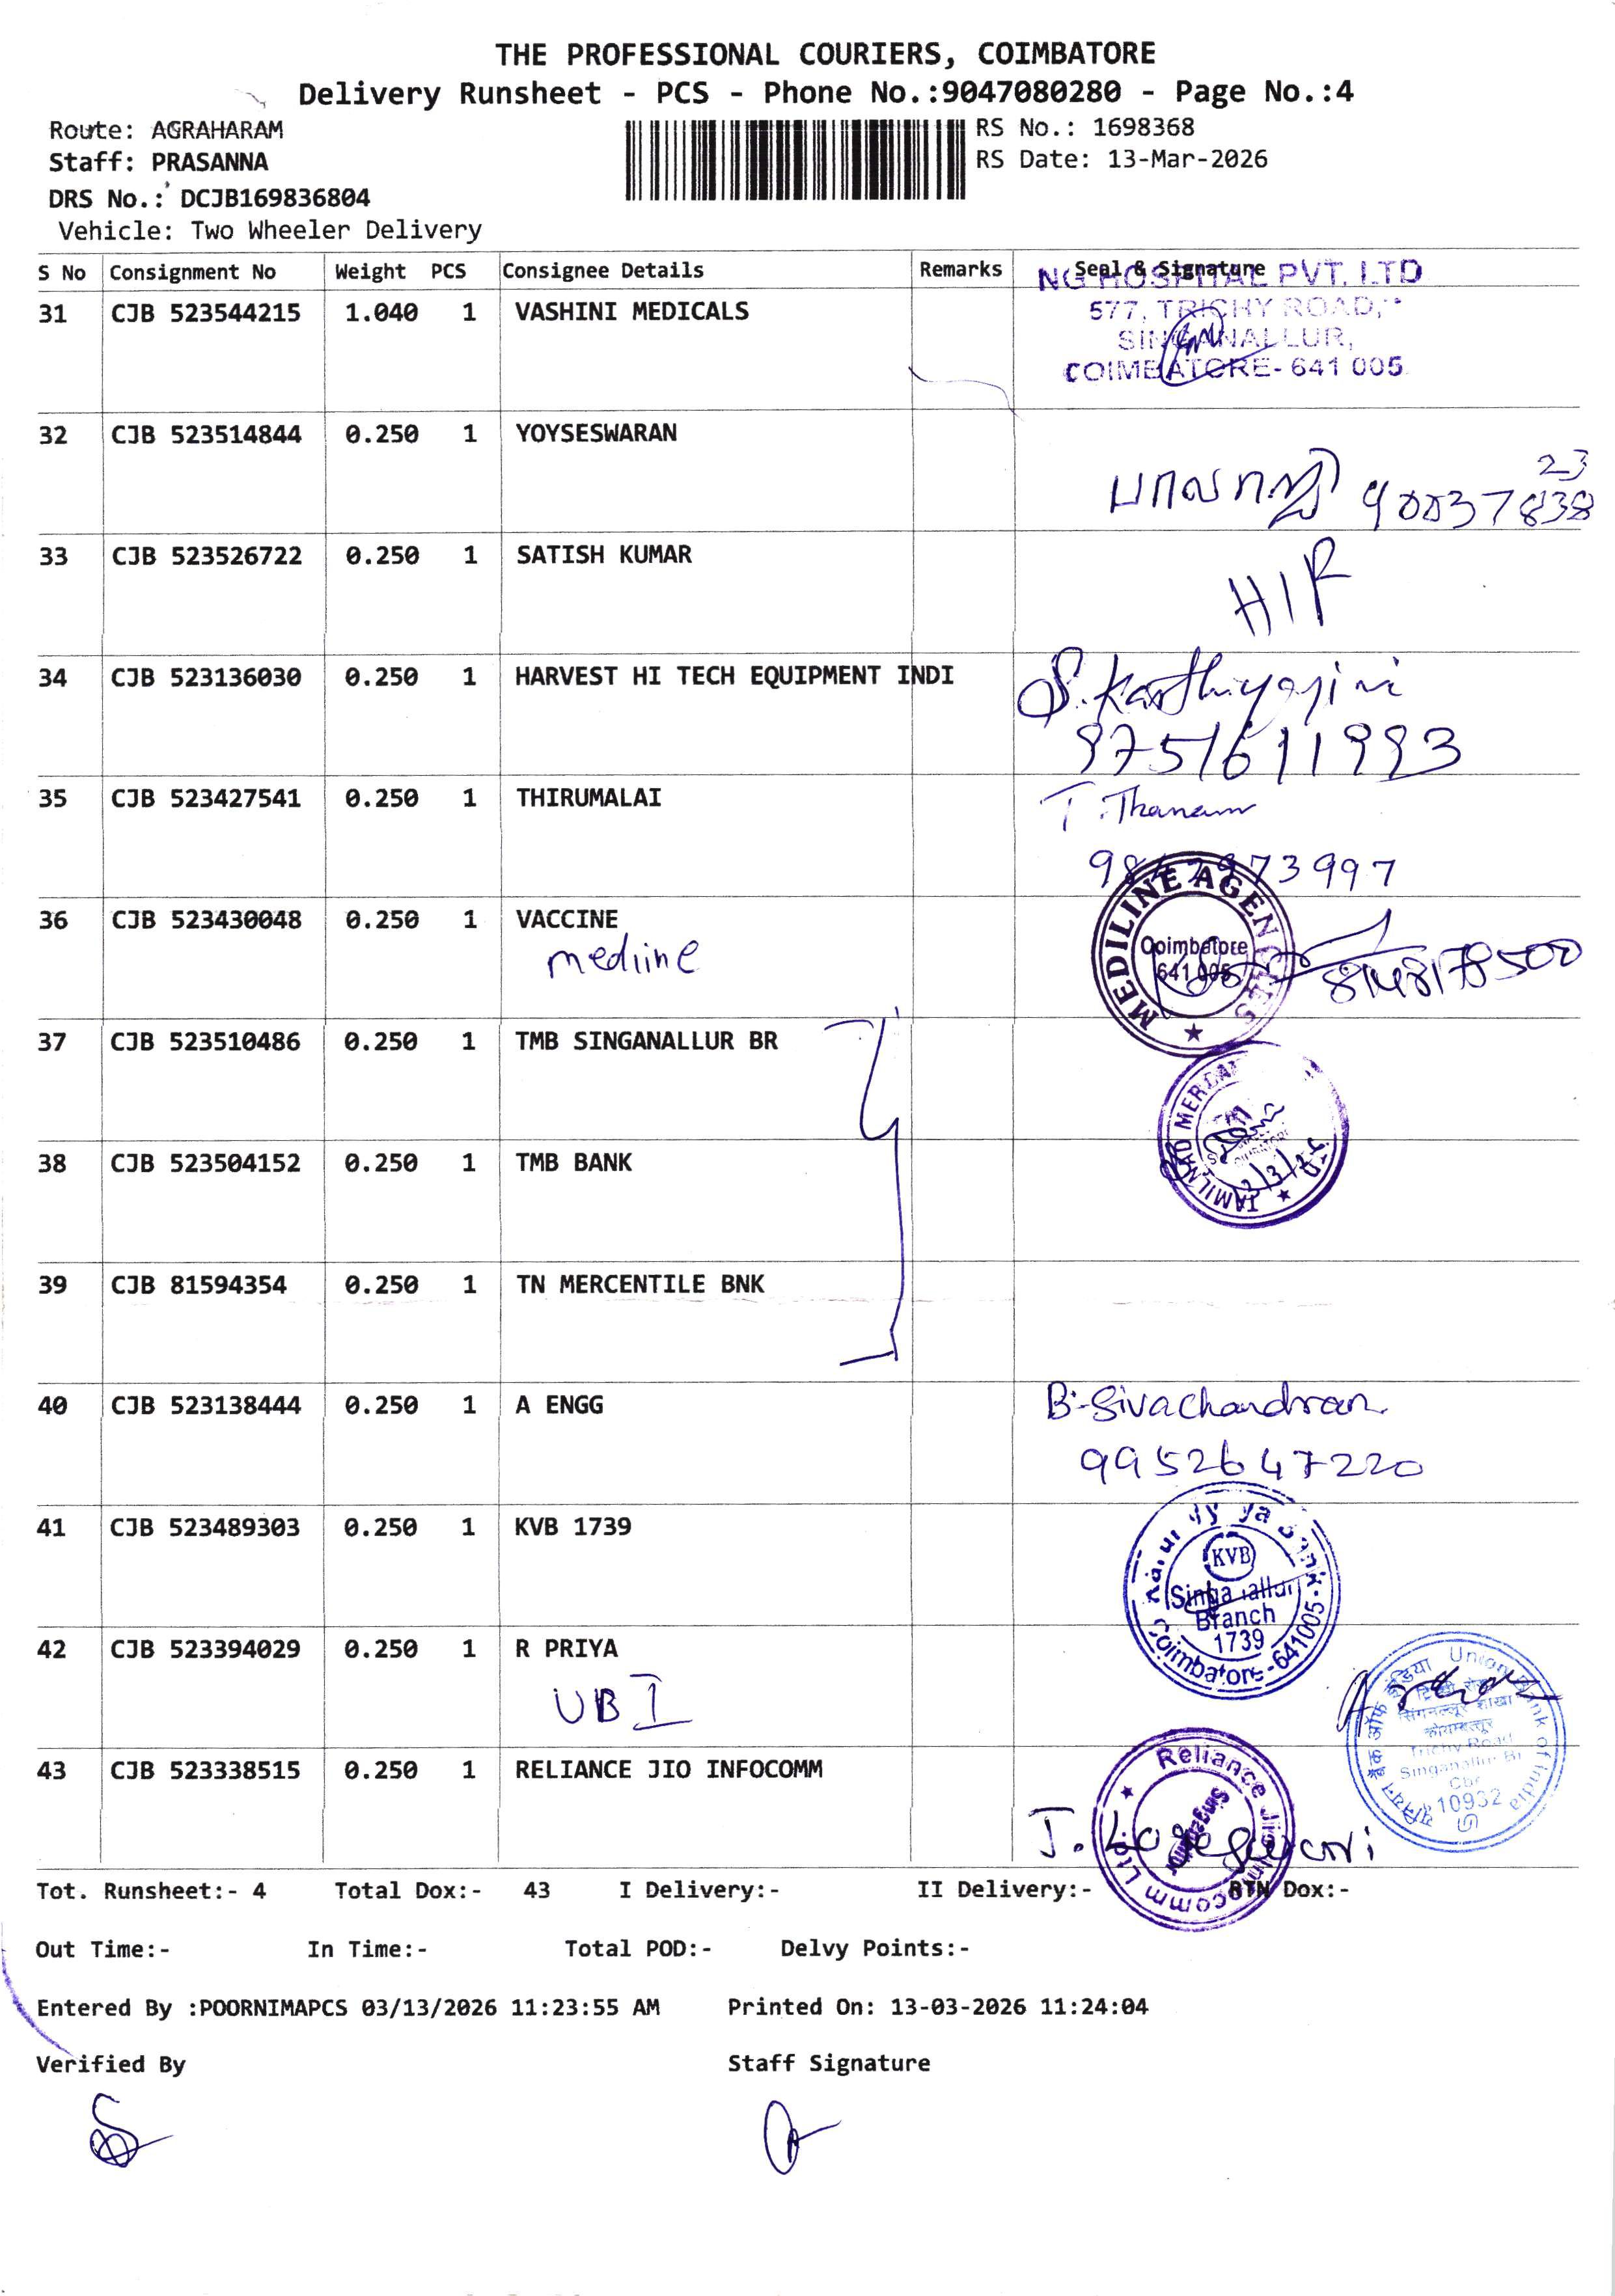 THE PROFESSIONAL COURIERS, COIMBATORE
Delivery Runsheet - PCS - Phone No.:9047080280 - Page No.:4
Route: AGRAHARAM
Staff: PRASANNA
DRS No.: DCJB169836804
Vehicle: Two Wheeler Delivery
RS No.: 1698368
RS Date: 13-Mar-2026
S No Consignment No Weight PCS Consignee Details Remarks Seal & Signature
31 CJB 523544215 1.040 1 VASHINI MEDICALS
NG HOSPITAL PVT. LTD
577, TRICHY ROAD,
SINGANALLUR,
COIMBATORE- 641 005
32 CJB 523514844 0.250 1 YOYSESWARAN
23
90037838
33 CJB 523526722 0.250 1 SATISH KUMAR
HIR
34 CJB 523136030 0.250 1 HARVEST HI TECH EQUIPMENT INDI
S. Karthiyayini
9751611993
35 CJB 523427541 0.250 1 THIRUMALAI
T. Thanam
973997
36 CJB 523430048 0.250 1 VACCINE
MEDILINE AGENCIES
Coimbatore
641 005
8148178500
37 CJB 523510486 0.250 1 TMB SINGANALLUR BR
38 CJB 523504152 0.250 1 TMB BANK
TAMILNAD
39 CJB 81594354 0.250 1 TN MERCENTILE BNK
40 CJB 523138444 0.250 1 A ENGG
B. Sivachandran
9952647220
41 CJB 523489303 0.250 1 KVB 1739
KVB
Branch
1739
Coimbatore-641005
42 CJB 523394029 0.250 1 R PRIYA
UBI
Union Bank of India
Trichy Road
Singanallur Br
Cbe
10932
43 CJB 523338515 0.250 1 RELIANCE JIO INFOCOMM
Reliance Jio Infocomm Ltd
J. Logeswari
Tot. Runsheet:- 4 Total Dox:- 43 I Delivery:- II Delivery:- RTN Dox:-
Out Time:- In Time:- Total POD:- Delvy Points:-
Entered By :POORNIMAPCS 03/13/2026 11:23:55 AM Printed On: 13-03-2026 11:24:04
Verified By Staff Signature